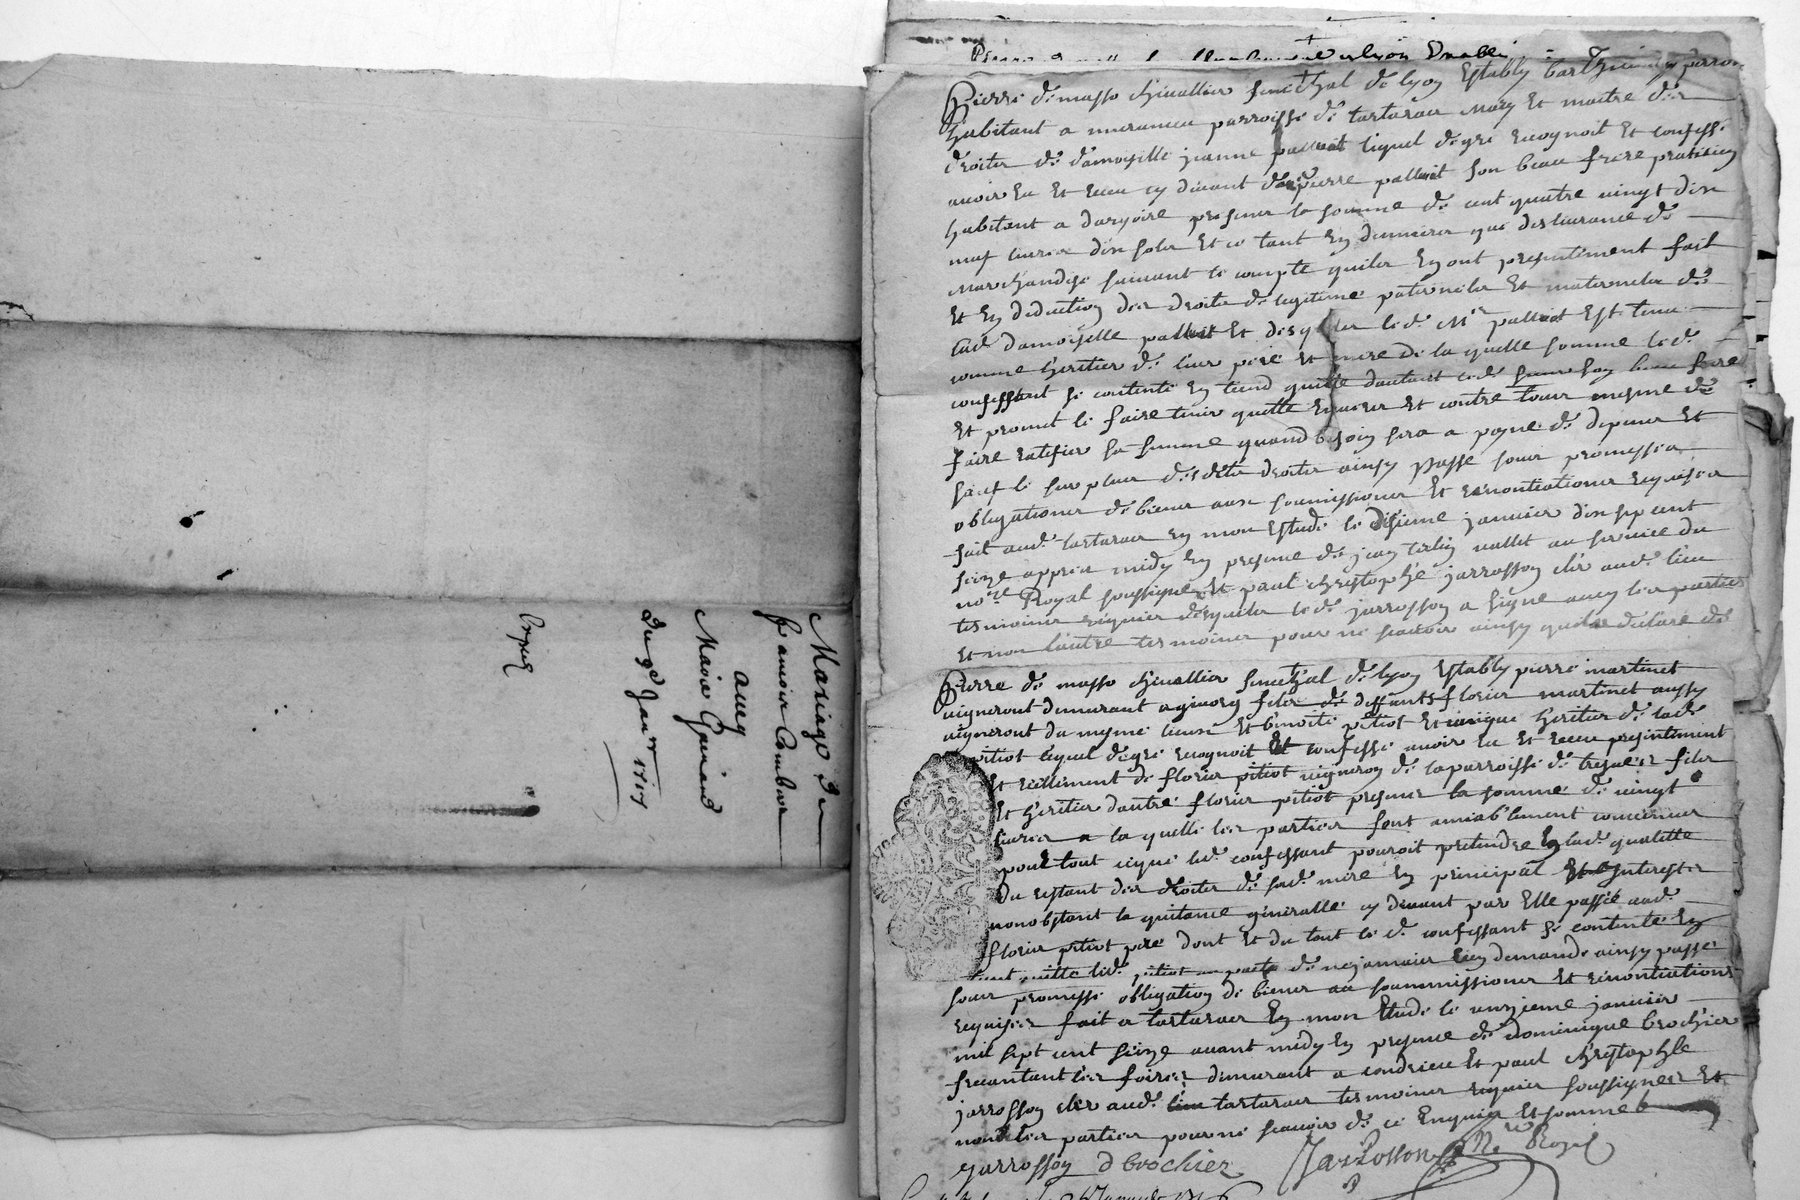 Mariage de
francois Combare
avecq
Marie Guinand
du 9e Janr 1717
Expié
Pierre de masso chevallier senechal de lyon Estably barthelemy perro
habitant a paroisse de tartaras mary et maitre des
droits de damoiselle jeanne palluat liquel degre recognoit et confesse
avoir Eu et receu cy devant de pierre palluat son beau frere praticien
habitant a dargoire present la somme de cent quatre vingt dix
neuf livres dix sols et ce tant En denniers que deslivrance de
marchandise suivant le compte quils En ont presentement fait
Et En deduction des droits de legitime paternels et maternels de
lad. damoiselle palluat et desquels led. Mr palluat Est tenu
comme heritier de leur pere et mere de la quelle somme led.
confessant se contente En tient quitte dautant led. sieur son beau frere
Et promet le faire tenir quitte Envers et contre tous mesme de
faire ratifier sa femme quand besoin sera a peyne de depens et
sauf le surplus desdits droits ainsy Passé sous promesses
obligationes de biens aux soumissiones et renontiationes requises
fait aud. tartaras En mon Estude le disieme janvier dix sept cent
seize appres midy En presence de jean terlin vallet au service du
nore Royal soussigné et paul christophle jarrosson clerc aud. lieu
tesmoins requis desquels led. jarrosson a signé avecq les parties
et non lautre tesmoins pour ne scavoir ainsy quil a declaré de
Pierre de masso chevallier senechal de lyon Estably pierre martinet
vigneront demurant a givors fils de deffunts floris martinet aussy
vigneront du mesme lieu et benoite pitiot et unique heritier de lade
pitiot lequel degre recognoit et confesse avoir Eu et receu presentement
et reellement de floris pitiot vigneron de la parroisse de tresves fils
et heritier dautre floris pitiot present la somme de vingt
livres a la quelle les parties sont amiablement convenues
pour tout ceque led. confessant pouroit pretendre En lad. qualitte
du restant des droits de sad. mere En principal Et Interests
nonobstant la quitance generalle cy devant par Elle passée aud.
floris pitiot pere dont et du tout led. confessant se contente En
tient quitte led. pitiot au pacte de nejamais rien demande ainsy passe
sous promesse obligation de biens au soummissiones et renontiations
requises fait a tartaras En mon Etude le unzieme janvier
mil sept cent seize avant midy En presence de dominique brochier
frecantant les foires demurant a condrieu et paul christophle
jarrosson clerc aud. lieu tartaras tesmoins requis soussignes et
non les parties pour ne scavoir de ce Enquis et sommé
Jarrosson d brochier Jarrosson Nre Royal